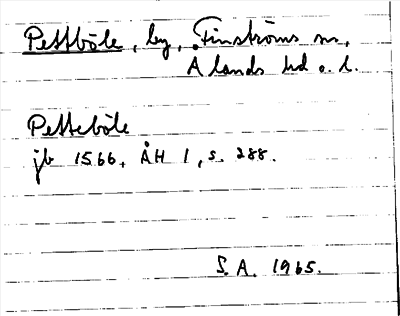 Pettböle, by, Finströms sn,
Ålands hd o. l.
Petteböle
jb 1566, ÅH 1, s. 288.
S.A. 1965.